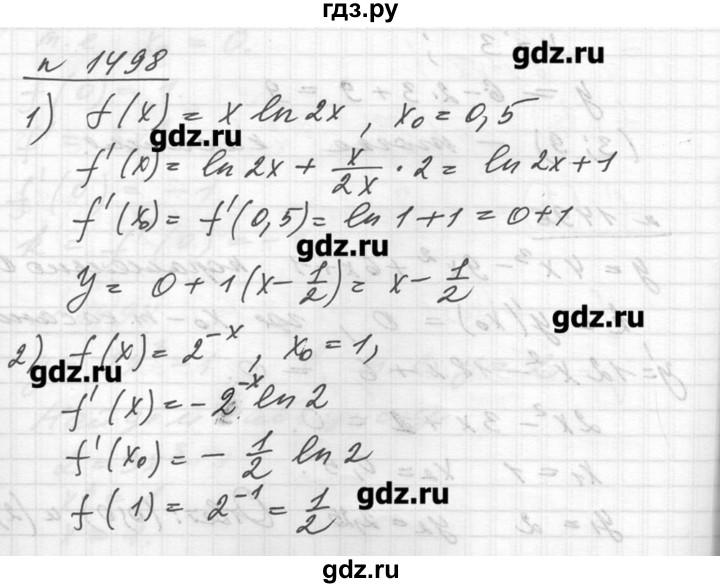 гдз.ру
n 1498
gdz.ru
1) f(x) = x ln 2x, x₀ = 0,5
gdz.ru
f'(x) = ln 2x + x/2x · 2 = ln 2x + 1
f'(x₀) = f'(0,5) = ln 1 + 1 = 0 + 1
gdz.ru
y = 0 + 1(x - 1/2) = x - 1/2
gdz.ru
2) f(x) = 2^(-x), x₀ = 1,
gdz.ru
f'(x) = -2^(-x) ln 2
f'(x₀) = - 1/2 ln 2
gdz.ru
f(1) = 2^(-1) = 1/2
gdz.ru